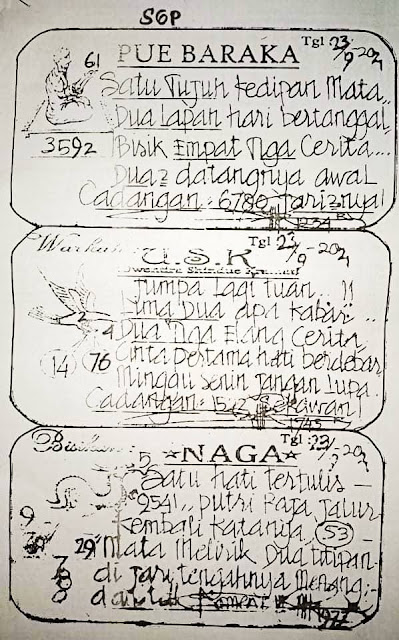 SGP
PUE BARAKA
Tgl 23/9-2021
61
Satu Tujuh Kedipan Mata..
Dua Lapan hari bertanggal,
3592
Bisik Empat Tiga Cerita...
Dua2 datangnya awal
Cadangan: 6780 Jari2nya!
1234
Warkah
U.S.K
Tgl 23/9-2021
Jumpa lagi tuan..!!
Lima Dua apa kabar..
2
4
Dua Tiga Elang Cerita,
14
76
Cinta Pertama hati berdebar
Minggu Senin Jangan Lupa.
Cadangan: 15-2 Sekawan!
1745
NAGA
Tgl: 23/9-2021
5
Satu hati tertulis -
2541.. putri Raja Jalur
9
Kembali Katanya
53
29
Mata Melirik Dua titipan
7
di Jari tengahnya Menang:-
8